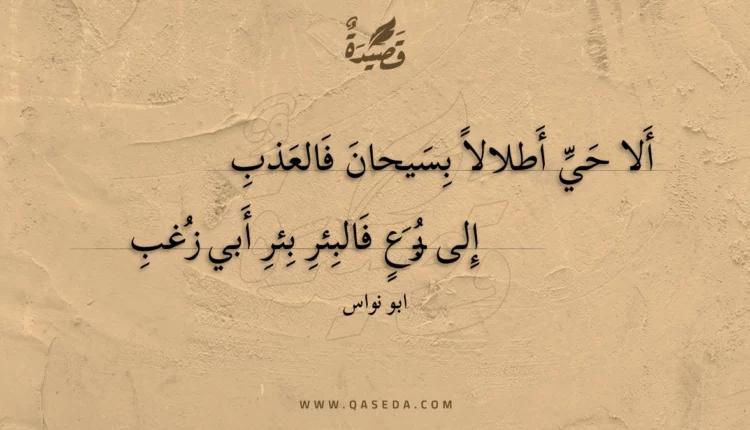 قَصِيدَةٌ
أَلا حَيِّ أَطلالاً بِسَيحانَ فَالعَذبِ
إِلى بُرَعٍ فَالبِئرِ بِئرِ أَبي زُغبِ
ابو نواس
WWW.QASEDA.COM